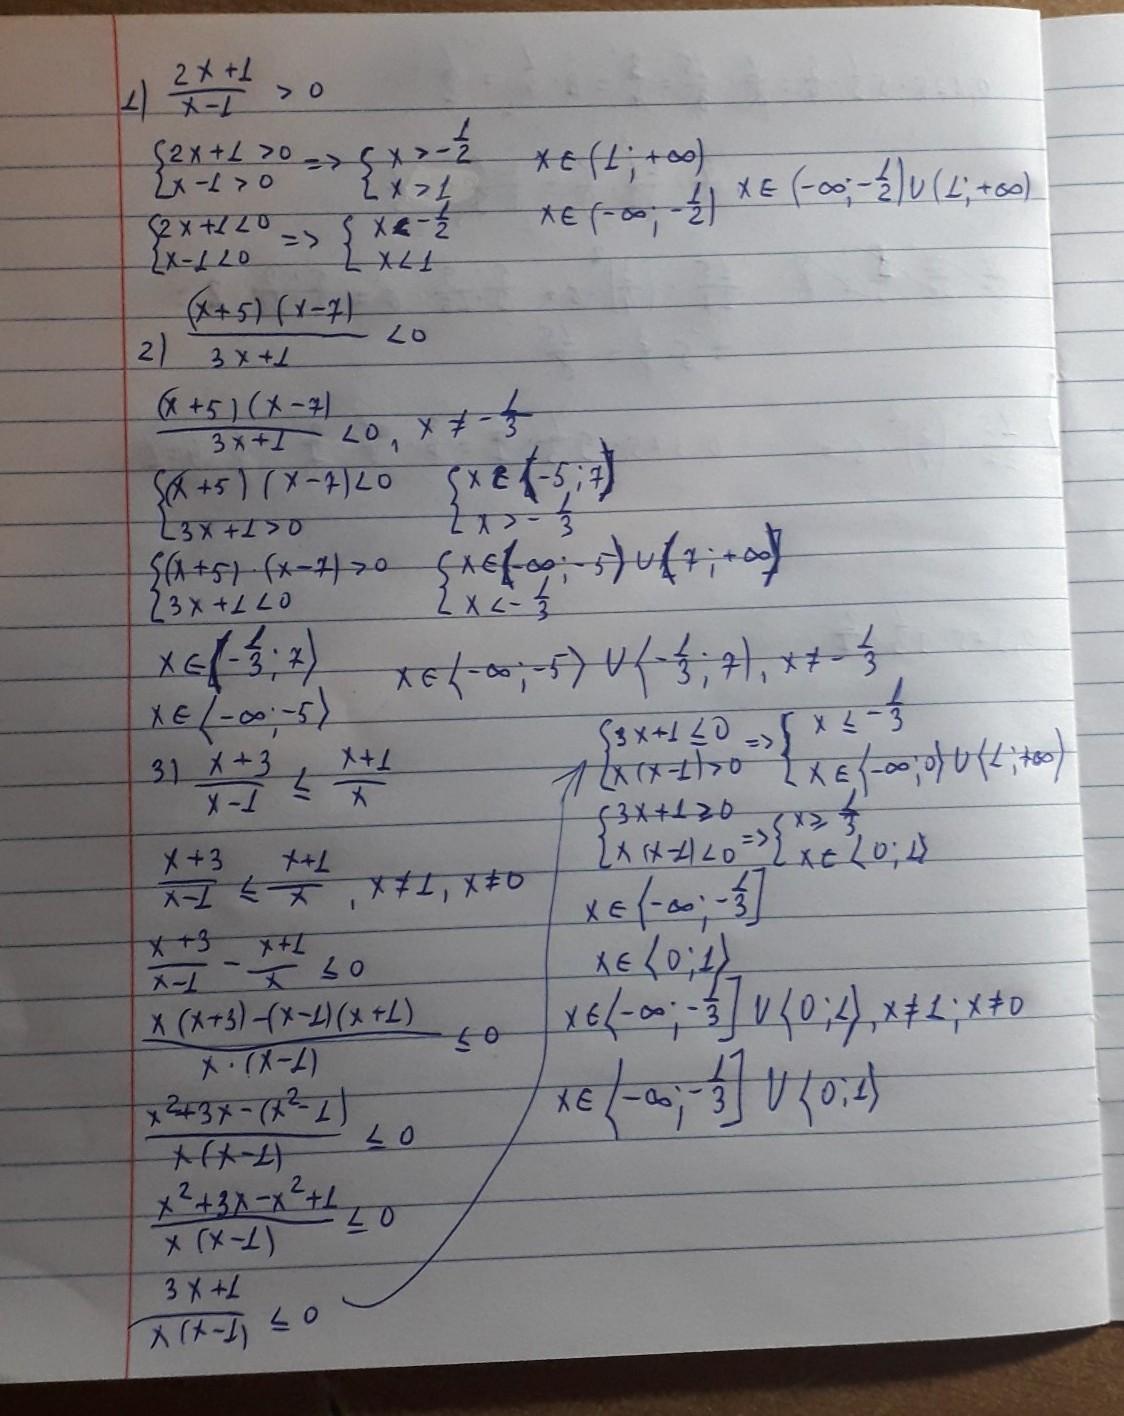 1) (2x+1)/(x-1) > 0
{2x+1>0 => {x>-1/2 x∈(1;+∞)
{x-1>0 {x>1
x∈(-∞;-1/2) x∈(-∞;-1/2)∪(1;+∞)
{2x+1<0 => {x<-1/2
{x-1<0 {x<1
2) (x+5)(x-7)/(3x+1) <0
(x+5)(x-7)/(3x+1) <0, x≠-1/3
{(x+5)(x-7)<0 {x∈(-5;7)
{3x+1>0 {x>-1/3
{(x+5)·(x-7)>0 {x∈(-∞;-5)∪(7;+∞)
{3x+1<0 {x<-1/3
x∈(-1/3;7) x∈(-∞;-5)∪(-1/3;7), x≠-1/3
x∈(-∞;-5)
3) (x+3)/(x-1) ≤ (x+1)/x
(x+3)/(x-1) ≤ (x+1)/x, x≠1, x≠0
(x+3)/(x-1) - (x+1)/x ≤0
(x(x+3)-(x-1)(x+1))/(x·(x-1)) ≤0
(x²+3x-(x²-1))/(x(x-1)) ≤0
(x²+3x-x²+1)/(x(x-1)) ≤0
(3x+1)/(x(x-1)) ≤0
{3x+1≤0 => {x≤-1/3
{x(x-1)>0 {x∈(-∞;0)∪(1;+∞)
{3x+1≥0 => {x≥1/3
{x(x-1)<0 {x∈(0;1)
x∈(-∞;-1/3]
x∈(0;1)
x∈(-∞;-1/3]∪(0;1), x≠1; x≠0
x∈(-∞;-1/3]∪(0;1)